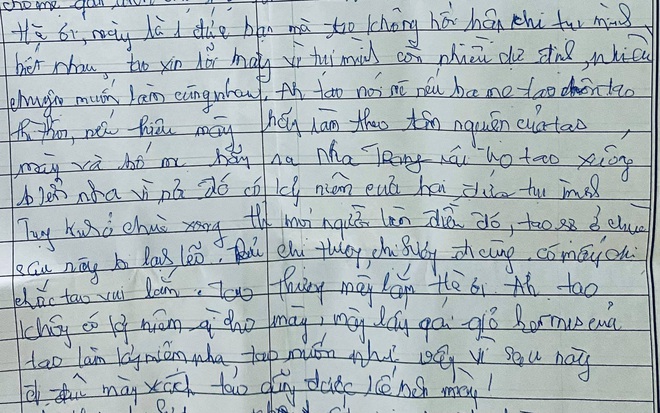 Hà ơi, mày là 1 đứa bạn mà tao không hối hận khi tụi mình
biết nhau, tao xin lỗi mày vì tụi mình còn nhiều dự định, nhiều
chuyện muốn làm cùng nhau. Ah tao nói rồi nếu ba mẹ tao chôn tao
thì thôi, nếu thiêu mày hãy làm theo tâm nguyện của tao
mày và bố mẹ hãy ra Nha Trang rải tro tao xuống
biển nha vì nơi đó có kỷ niệm của hai đứa tụi mình
xong thì mọi người lên đó, tao sẽ ở chùa
sau này lạnh lẽo. chị Thủy đi cùng. có mấy chị
chắc tao vui lắm. Tao thương mày lắm Hà ơi. Ah tao
không có kỷ niệm gì cho mày, mày lấy cái giỏ hermes của
tao làm kỷ niệm nha tao muốn như vậy vì sau này
đi đâu mày xách tao cũng được kế bên mày!